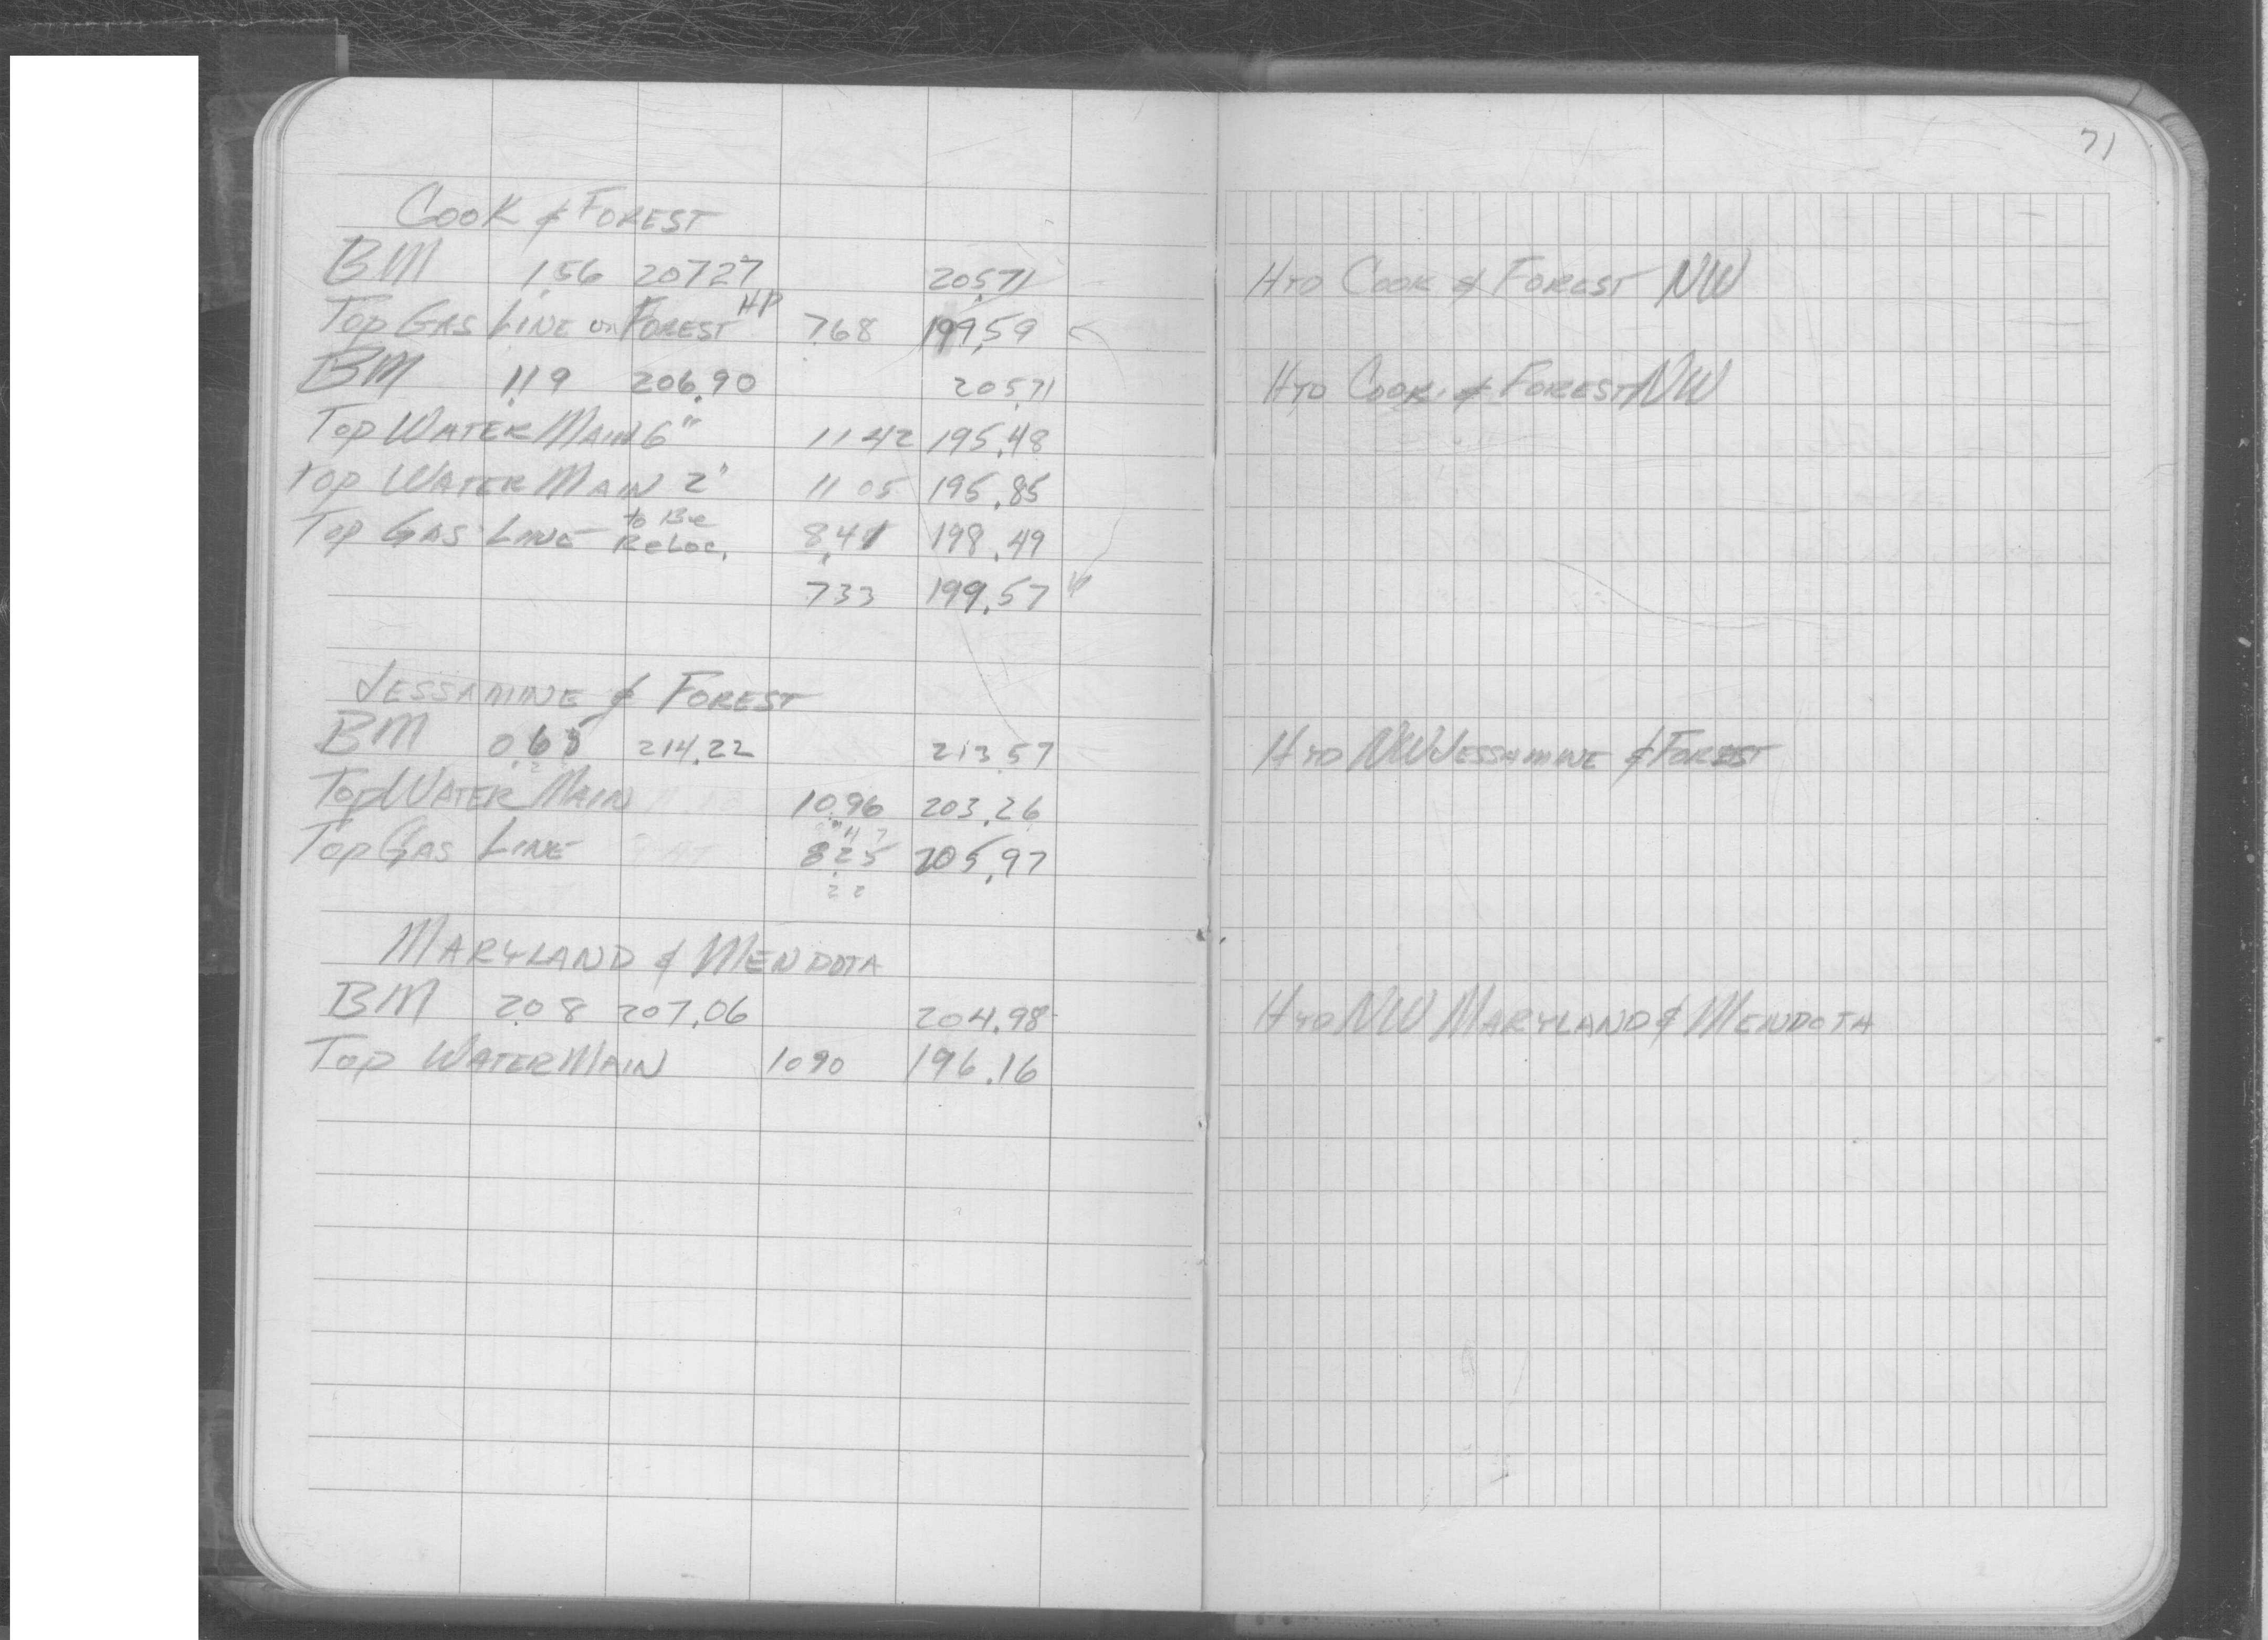 71
COOK & FOREST
BM 1.56 207.27 205.71 HYD COOK & FOREST NW
TOP GAS LINE on FOREST HP 7.68 199.59
BM 1.19 206.90 205.71 HYD COOK & FOREST NW
TOP WATER MAIN 6" 11 42 195.48
TOP WATER MAIN 2" 11 05 195.85
TOP GAS LINE to Be ReLoc. 8.41 198.49
7 33 199.57
JESSAMINE & FOREST
BM 0.65 214.22 213.57 HYD NW JESSAMINE & FOREST
TOP WATER MAIN 10.96 203.26
TOP GAS LINE 8.25 205.97
2 2
MARYLAND & MENDOTA
BM 2.08 207.06 204.98 HYD NW MARYLAND & MENDOTA
TOP WATER MAIN 10 90 196.16